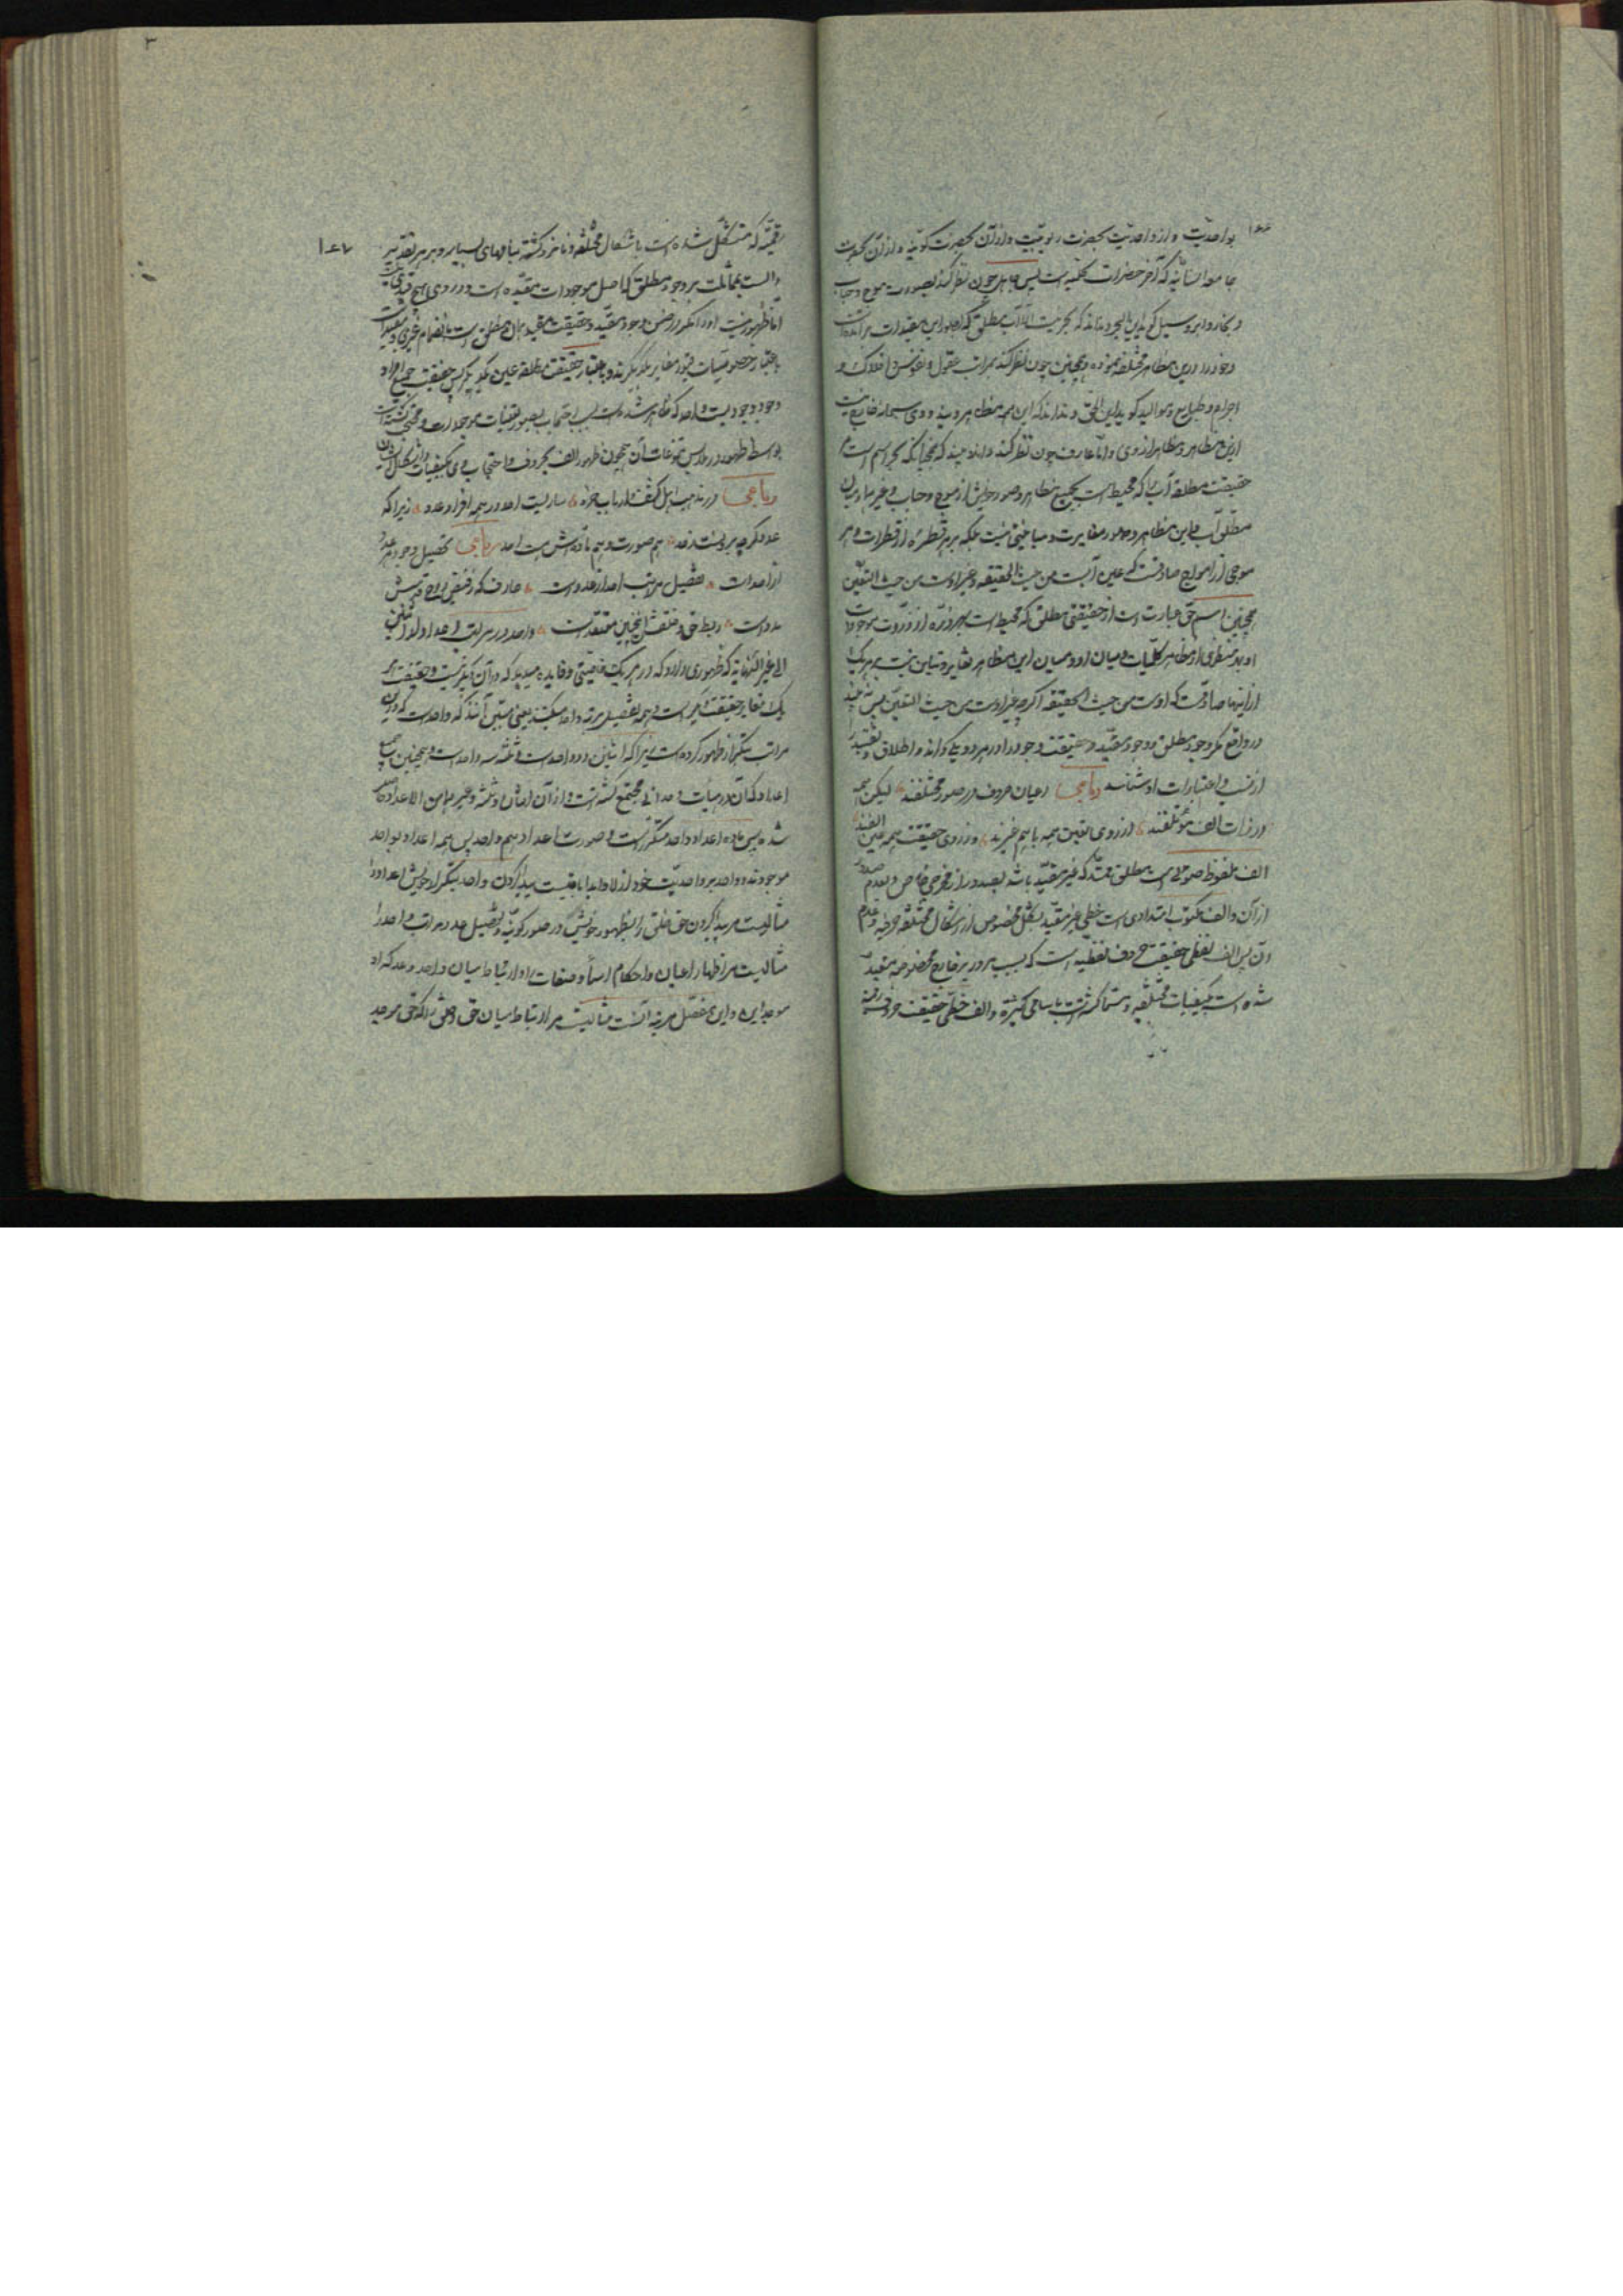 بواحدیت و از واحدیت بحضرت ربوبیت و از آن بحضرت کونیه و از آن بحضرت
جامعه انسانیه که آخر حضرات کلیه است پس جاهل چون نظر کند بصورت موج و حباب
و بخار و ابر و سیل گوید این البحر و نداند که بحر نیست الا آب مطلق که بصور این مقیدات برآمده است
و خود را درین مظاهر مختلفه نموده و همچنین چون نظر کند بمراتب عقول و نفوس و افلاک و
اجرام و طبایع و موالید گوید این الحق و نداند که این همه مظاهر ویند و وی سبحانه خارج نیست
ازین مظاهر و مظاهر از وی و اما عارف چون نظر کند داند و بیند که همچنانکه بحر اسم است
حقیقت مطلقه آب را که محیط است بجمیع مظاهر و صور خویش از موج و حباب و غیرهما و میان
مطلق آب و این مظاهر و صور مغایرت و مباینتی نیست بلکه بر هر قطره از قطرات و هر
موجی از امواج صادقست که عین آبست من حیث الحقیقه و غیر اوست من حیث التعین
همچنین اسم حق عبارت است از حقیقتی مطلق که محیط است بهر ذره از ذرات موجودات
و بهر مظهری از مظاهر کلیات و میان او و میان این مظاهر تغایر و تباین نیست بر هر یک
از اینها صادقست که اوست من حیث الحقیقه اگرچه غیر اوست من حیث التعین پس نبیند
در واقع مگر وجود مطلق و وجود مقید و حقیقت وجود را در هر دو یکی داند و اطلاق و تقیید را
از نسب و اعتبارات او شناسد رباعی اعیان حروف در صور مختلفند لیکن همه
در ذات الف مؤتلفند از روی تعین همه با هم غیرند وز روی حقیقت همه عین الفند
الف ملفوظ صوتی است مطلق ممتد که غیر مقید باشد بصدور از مخرجی خاص و بعدم صدور
از آن و الف مکتوب امتدادی است خطی غیر مقید بشکل مخصوص از اشکال مختلفه حرفیه و بعدم
آن پس الف لفظی حقیقت حروف لفظیه است که بسبب مرور بر مخارج مخصوصه مقید
شده است بکیفیات مختلفه و مسما گشته است باسامی کثیره و الف خطی حقیقت حروف رقمیه
رقمیه که متشکل شده است باشکال مختلفه و نامزد گشته بنامهای بسیار و بر هر تقدیر
دالست بمماثلت بر وجود مطلق که اصل موجودات مقیده است و در وی هیچ قیدی نیست
اما ظهور نیست او را مگر در ضمن وجود مقید و حقیقت مقید همان مطلق است بانضمام قیدی و مقیدات
باعتبار خصوصیات قیود مغایر یکدیگرند و باعتبار حقیقت مطلقه عین یکدیگر پس حقیقت جمیع افراد
وجود وجودیست واحد که ظاهر شده است بسبب احتجاب بصور تعینات موجودات و مختفی گشته است
بواسطه ظهور در ملابس تنوعات آن همچون ظهور الف بحروف و احتجاب وی بکیفیات و اشکال ایشان
رباعی در مذهب اهل کشف و ارباب خرد ساریست احد در همه افراد عدد زیرا که
عدد گرچه برونست ز حد هم صورت و هم ماده‌اش هست احد رباعی تحصیل وجود هر عدد
از احد است تفصیل مراتب احد از عدد است عارف که ز فیض روح قدسش
مدد است ربط حق و خلقش اینچنین معتقد است واحد در مراتب اعداد از اثنین
الی غیر النهایه که ظهوری دارد که در هر یک خاصیتی و فایده میدهد که در آن دیگر نیست و حقیقت هر
یک مغایر حقیقت دیگر است و همه تفصیل مرتبه واحد میکنند یعنی مبین آنند که واحد است که درین
مراتب بتکرار ظهور کرده است زیرا که اثنین دو واحد است و ثلثه سه واحد است و همچنین جمیع
اعداد که آن در هیأت وحدانی مجتمع گشته است و از آن اثنان و ثلثه و غیرهما من الاعداد حاصل
شده پس ماده اعداد واحد متکرر است و صورت اعداد هم واحد پس همه اعداد بواحد
موجودند و واحد بر واحدیت خود ازلا و ابدا باقیست پیدا کردن واحد بتکرار خویش اعداد را
مثالیست مر پیدا کردن حق خلق را بظهور خویش در صور کونیه و تفصیل عدد مراتب واحد را
مثالیست مر اظهار اعیان و احکام اسما و صفات را و ارتباط میان واحد و عدد که او
موجد این و این مفصل مرتبه آنست مثالیست مر ارتباط میان حق و خلق را که حق موجد